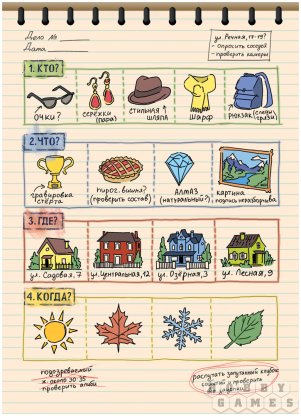 Дело №
Дата
ул Речная, 17-19?
- опросить соседей
- проверить камеры
1. КТО?
очки?
серёжки
(пара)
стильная
шляпа
шарф
рюкзак
2. ЧТО?
гравировка
стёрта
пирог. вишня?
(проверить состав)
алмаз
(натуральный?)
картина
подпись неразборчива
3. ГДЕ?
ул. Садовая, 7
ул. Центральная, 12
ул. Озёрная, 3
ул. Лесная, 9
4. КОГДА?
подозреваемый
х около 30-35
проверить алиби
распутать запутанный клубок
событий и проверить
все зацепки
HOBBY
GAMES